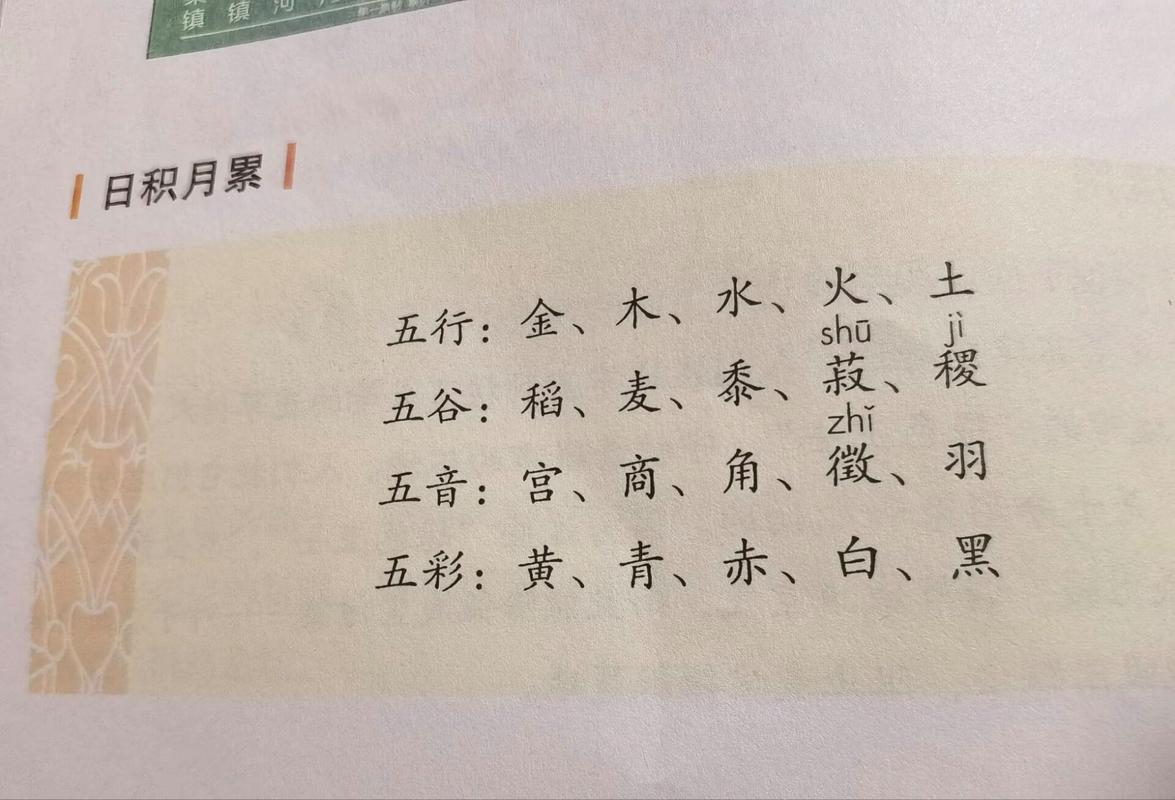 镇 镇 河
日积月累
五行：金、木、水、火、土
shū jì
五谷：稻、麦、黍、菽、稷
zhǐ
五音：宫、商、角、徵、羽
五彩：黄、青、赤、白、黑